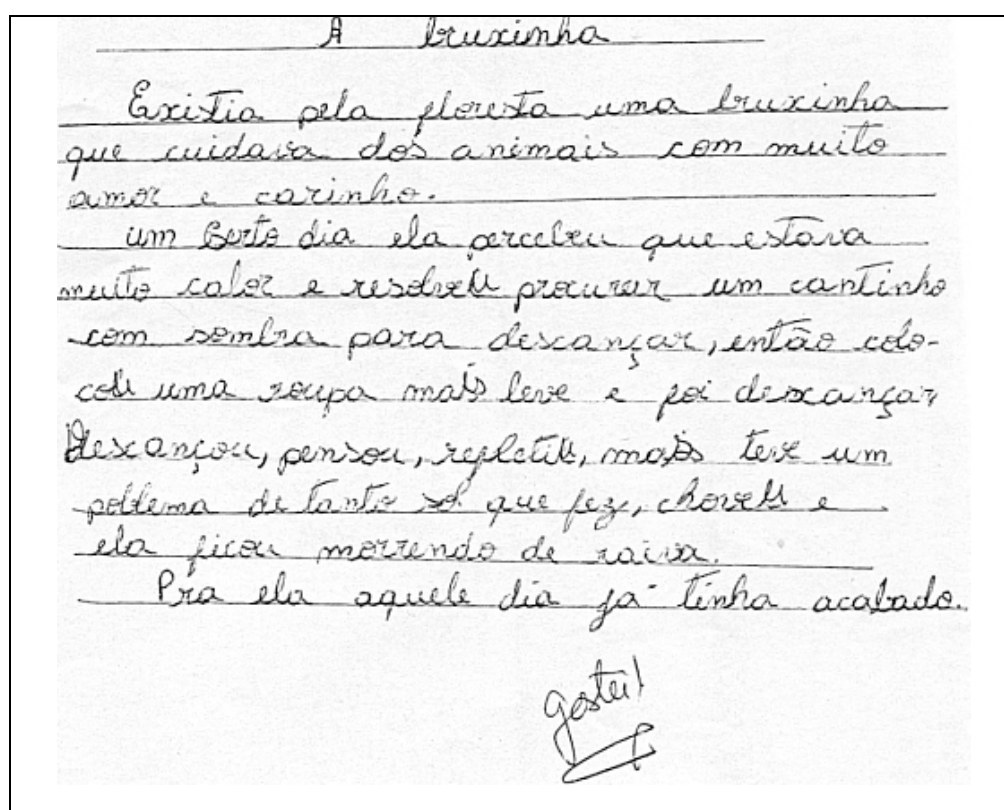 A bruxinha
Existia pela floresta uma bruxinha
que cuidava dos animais com muito
amor e carinho.
um Certo dia ela percebeu que estava
muito calor e resolveu procurar um cantinho
com sombra para descançar, então colo-
cou uma roupa mais leve e foi descançar
Descançou, pensou, refletiu, mais teve um
poblema de tanto sol que fez, choveu e
ela ficou morrendo de raiva.
Pra ela aquele dia já tinha acabado.
gostei!